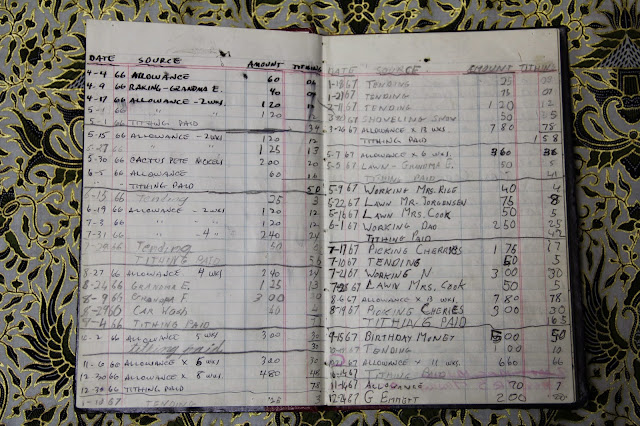 DATE SOURCE AMOUNT TITHING
4-4 66 ALLOWANCE 60 06
4-9 66 RAKING-GRANDMA E. 40 04
4-17 66 ALLOWANCE-2WKS 120 12
" " 120 12
5-1 66 TITHING PAID 34
5-15 66 ALLOWANCE-2WKS 120 12
66 " 125 13
5-30 66 CACTUS PETE NICKELS 200 20
6-5 66 ALLOWANCE 60 6
TITHING PAID 50
66 Tending 25 3
6-19 66 ALLOWANCE -2WKS 120 12
7-3 66 " " 120 12
7-31 66 " -4" 240 24
66 Tending
TITHING PAID
8-27 66 ALLOWANCE 4 WKS 240 24
8-26 66 GRANDMA E, 125 13
8-9 GRANDPA F. 300 30
CAR WASH
9-4 66 TITHING PAID
10-2 66 ALLOWANCE 5 WKS 300 30
tithing paid 30
11-6 66 ALLOWANCE X 5 WKS 300 30
12-30 66 ALLOWANCE X 8 WKS 480 48
12-30 66 TITHING PAID 78
67 TENDING 25 3
DATE SOURCE AMOUNT TITHING
67 TENDING 25 03
67 TENDING 75
67 TENDING 120 12
67 SHOVELING SNOW 50 5
67 ALLOWANCE X 13 WKS. 780 78
TITHING PAID 158
67 ALLOWANCE X 6 WKS. 360 36
5-5 67 LAWN-GRANDMA 50 5
TITHING PAID 41
5-9 67 WORKING MRS. RICE 40 4
5-22 67 LAWN MR. JORGENSEN 75 8
67 LAWN MRS. COOK 50 5
6-1 67 WORKING DAD 250 25
TITHING PAID 42
67 PICKING CHERRIES 175 17
7-10 67 TENDING 50 5
7-21 67 WORKING N 300 30
67 LAWN MRS. COOK 50 5
8-6 67 ALLOWANCE X 13 WKS. 780 78
67 PICKING CHERIES 300 30
TITHING PAID 165
67 BIRTHDAY MONEY 500 50
67 TENDING 100 10
67 ALLOWANCE X 11 WKS. 660 66
TITHING PAID
67 ALLOWANCE 70 7
67 G EMMETT 200